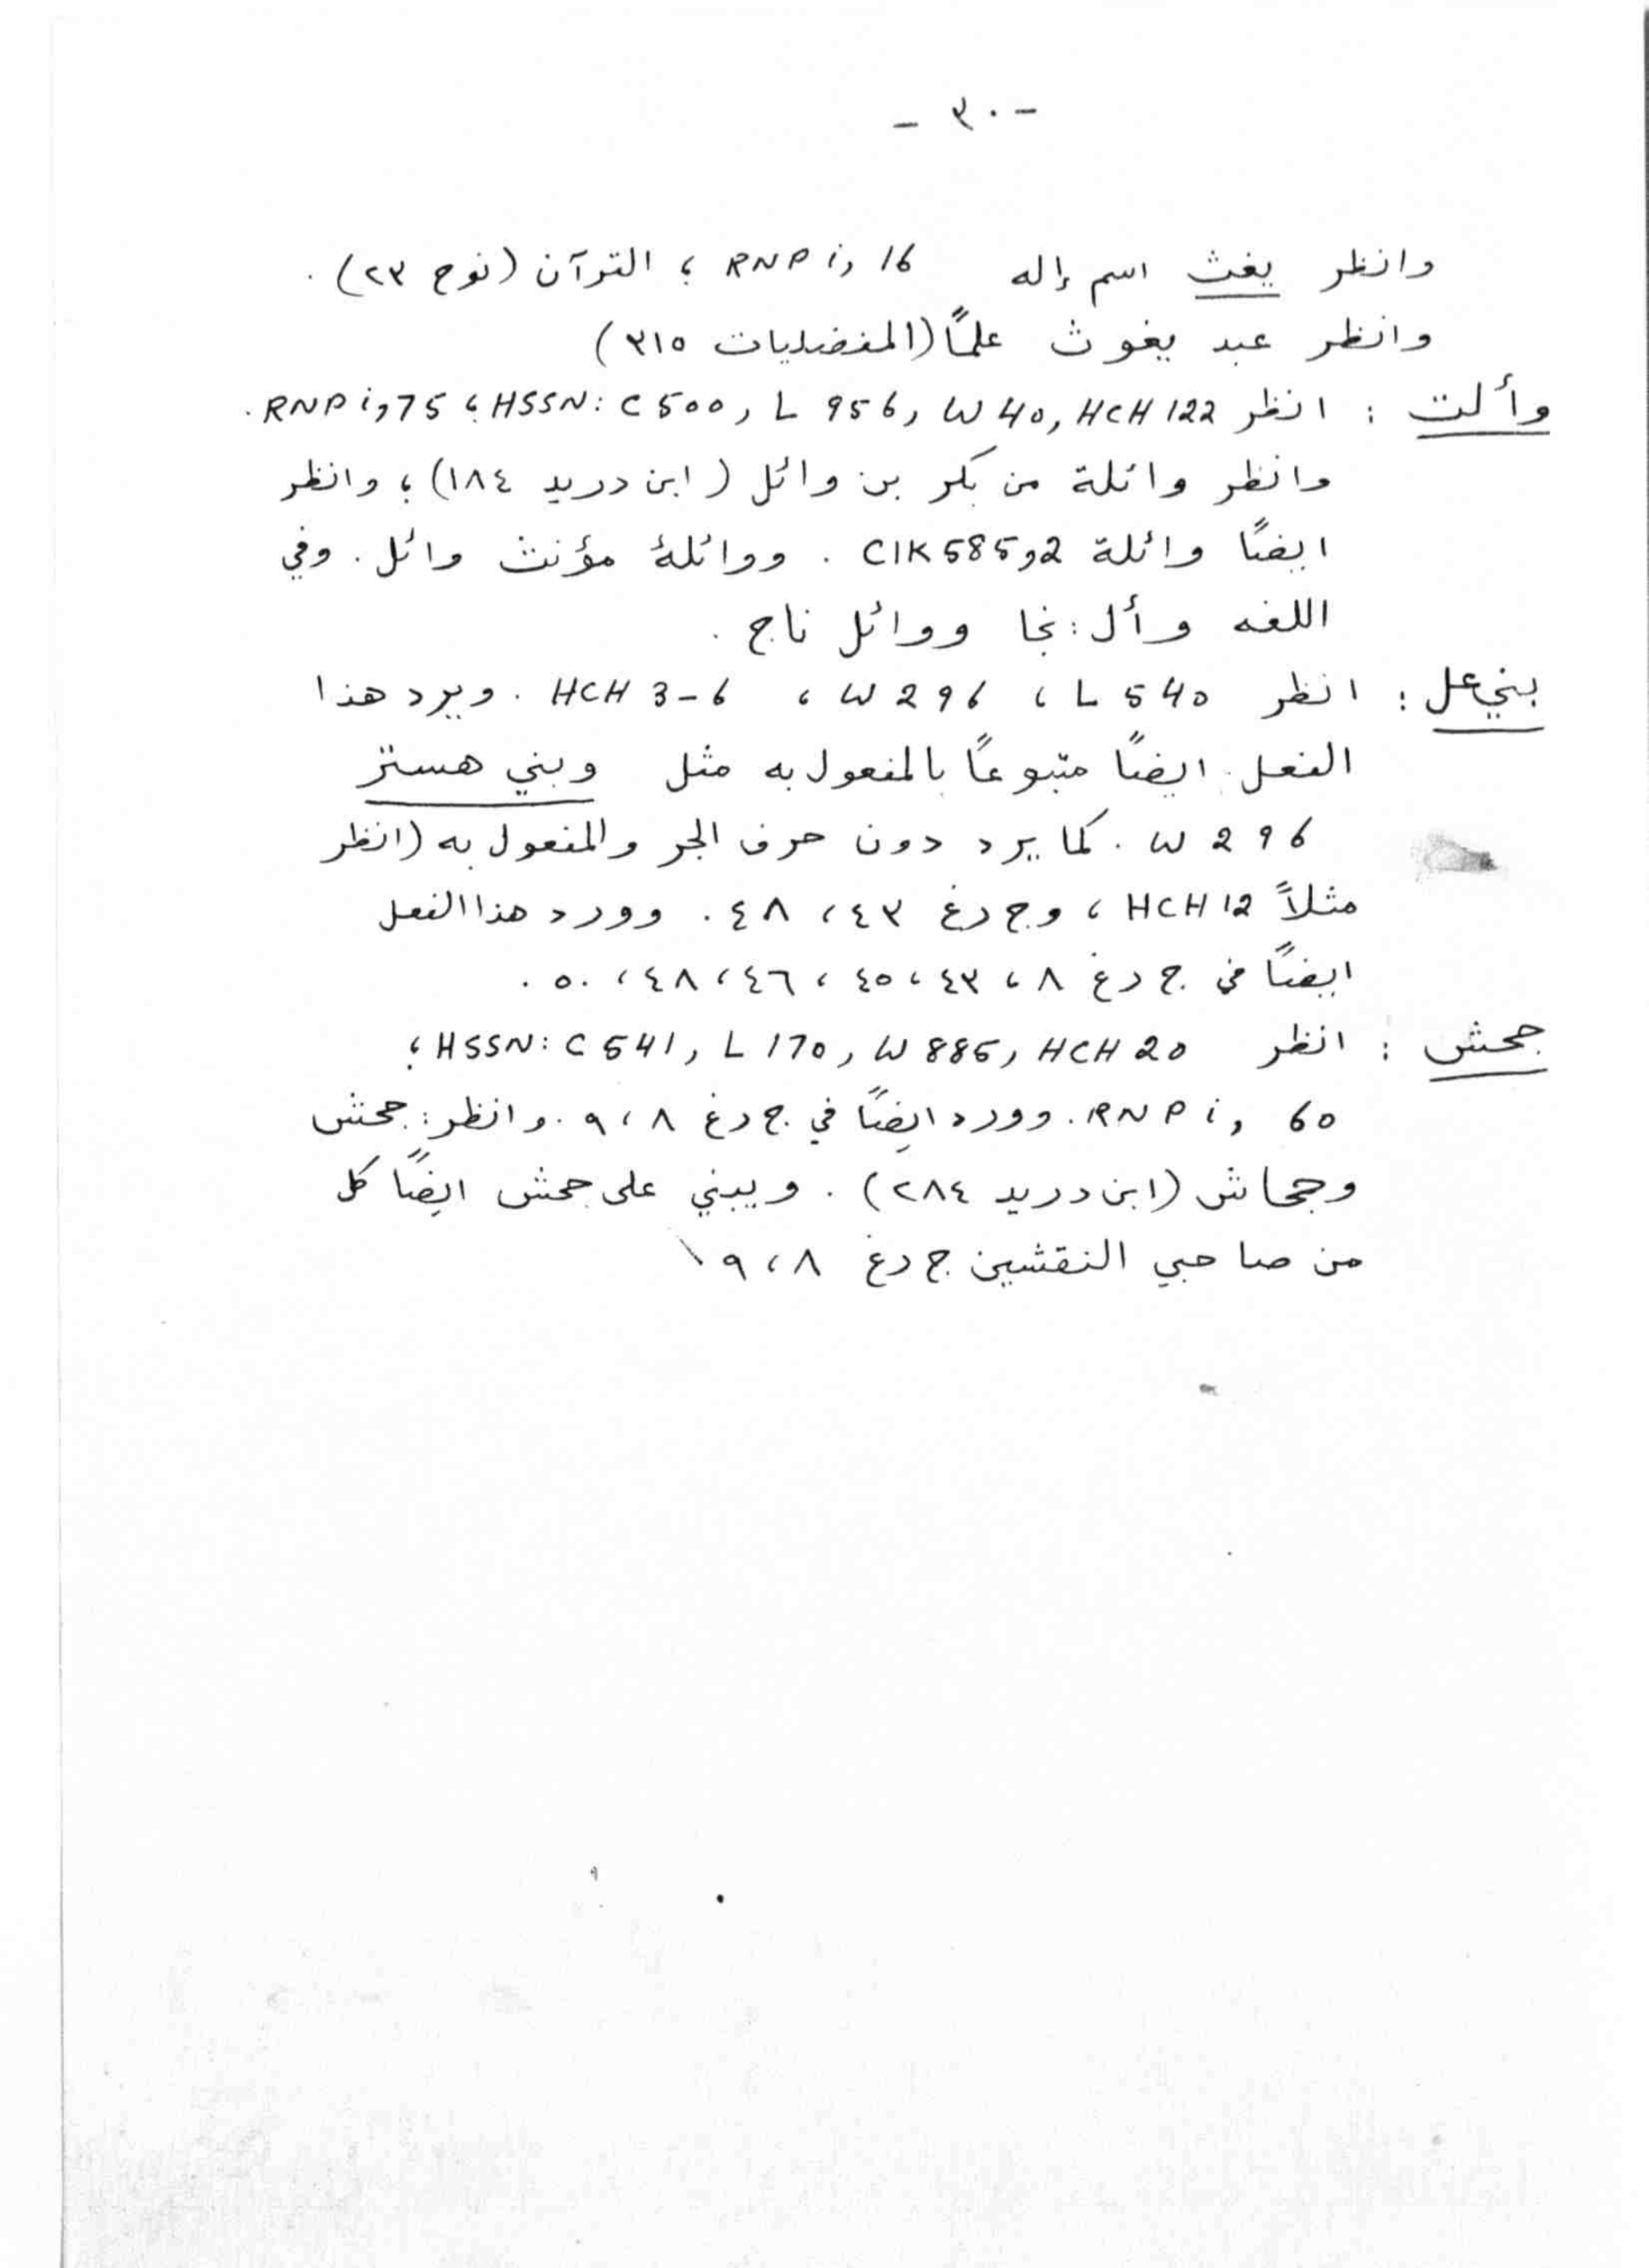 - ٣٠ -
وانظر يغث اسم إله RNP i, 16 ؛ القرآن (نوح ٢٣) .
وانظر عبد يغوث علمًا (المفضليات ٣١٥)
وألت : انظر HSSN: C 500, L 956, W 40, HCH 122 ؛ RNP i, 75 .
وانظر وائلة من بكر بن وائل ( ابن دريد ١٨٤) ؛ وانظر
ايضًا وائلة CIK 585,2 . ووائلة مؤنث وائل . وفي
اللغه وأل : نجا ووائل ناج .
بني عل : انظر L 540 ، W 296 ، HCH 3-6 . ويرد هذا
الفعل ايضًا متبوعًا بالمفعول به مثل وبني هستر
W 296 . كما يرد دون حرف الجر والمفعول به (انظر
مثلاً HCH 12 ، وج دغ ٤٣ ، ٤٨ . وورد هذا الفعل
ايضًا في ج دغ ٨ ، ٤٣ ، ٤٥ ، ٤٦ ، ٤٨ ، ٥٠ .
جحش : انظر HSSN: C 541, L 170, W 885, HCH 20 ؛
RNP i, 60 . وورد ايضًا في ج دغ ٨ ، ٩ . وانظر : جحش
وجحاش (ابن دريد ٢٨٤) . ويبني على جحش ايضًا كل
من صاحبي النقشين ج دغ ٨ ، ٩